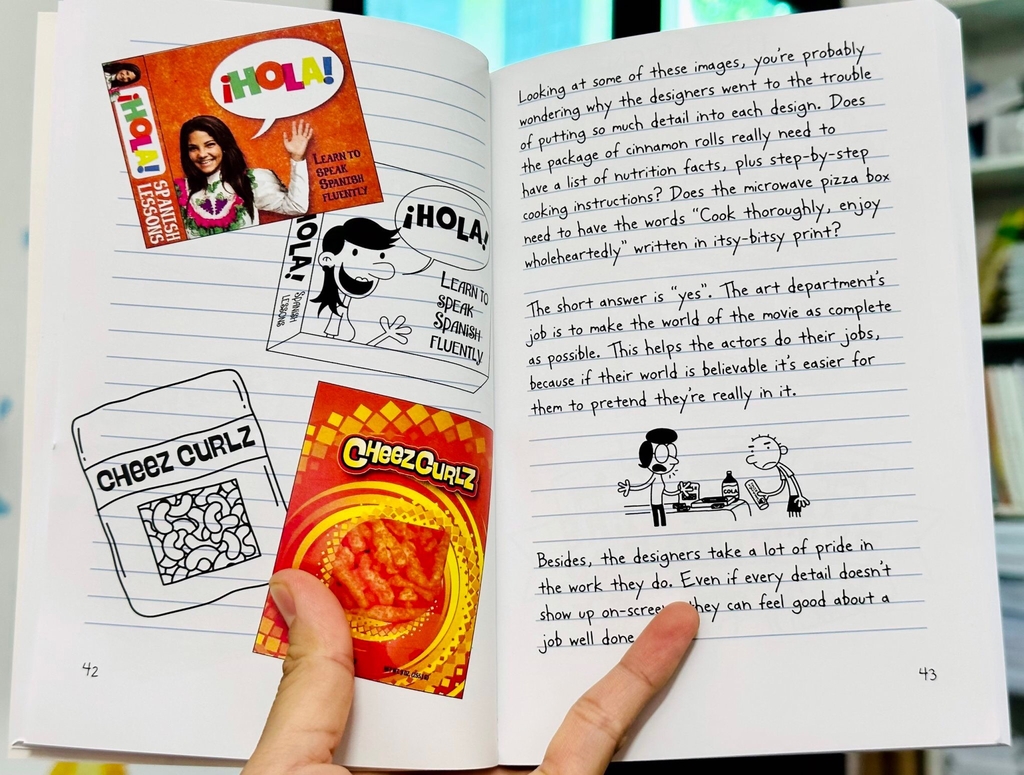 ¡HOLA!
¡HOLA!
SPANISH
LESSONS
LEARN TO
SPEAK
SPANISH
FLUENTLY
¡HOLA!
HOLA!
SPANISH
LESSONS
LEARN TO
SPEAK
SPANISH
FLUENTLY
CHEEZ CURLZ
CHEEZ CURLZ
42
Looking at some of these images, you're probably
wondering why the designers went to the trouble
of putting so much detail into each design. Does
the package of cinnamon rolls really need to
have a list of nutrition facts, plus step-by-step
cooking instructions? Does the microwave pizza box
need to have the words “Cook thoroughly, enjoy
wholeheartedly” written in itsy-bitsy print?
The short answer is “yes”. The art department's
job is to make the world of the movie as complete
as possible. This helps the actors do their jobs,
because if their world is believable it's easier for
them to pretend they're really in it.
COLA
Besides, the designers take a lot of pride in
the work they do. Even if every detail doesn't
show up on-screen they can feel good about a
job well done
43